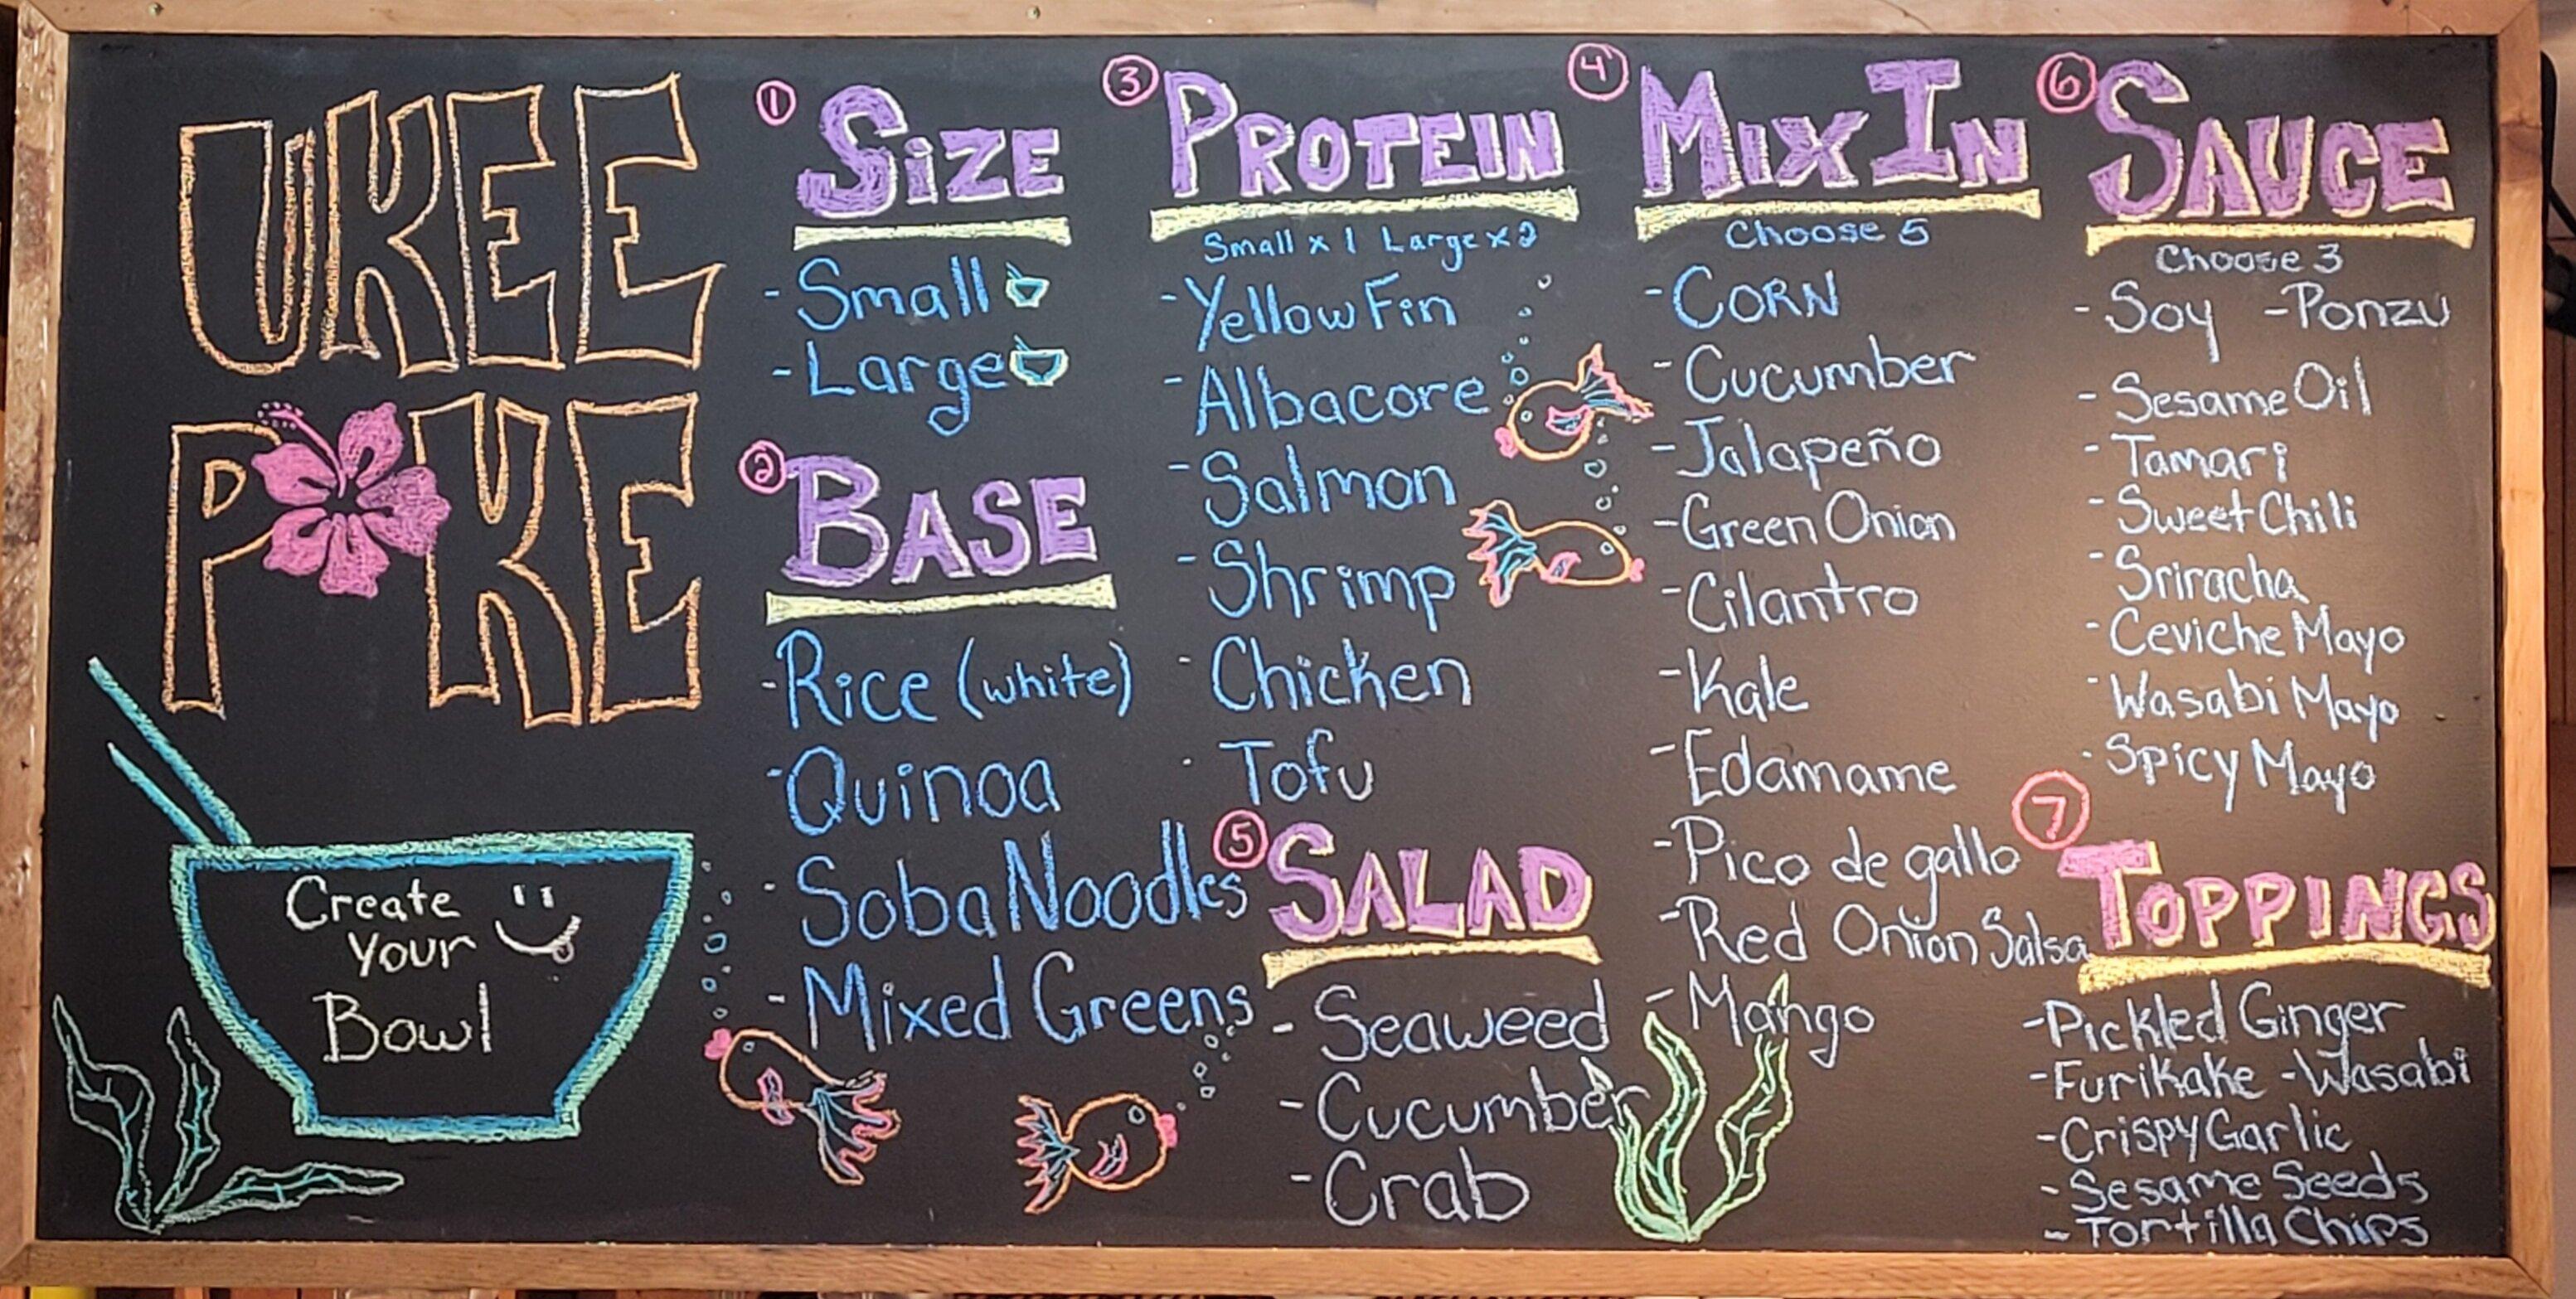 UKEE
POKE
Create
Your
Bowl
① SIZE
- Small
- Large
② BASE
- Rice (white)
- Quinoa
- Soba Noodles
- Mixed Greens
③ PROTEIN
Small x 1 Large x 2
- Yellow Fin
- Albacore
- Salmon
- Shrimp
- Chicken
- Tofu
④ MIX IN
Choose 5
- CORN
- Cucumber
- Jalapeño
- Green Onion
- Cilantro
- Kale
- Edamame
- Pico de gallo
- Red Onion Salsa
- Mango
⑤ SALAD
- Seaweed
- Cucumber
- Crab
⑥ SAUCE
Choose 3
- Soy - Ponzu
- Sesame Oil
- Tamari
- Sweet Chili
- Sriracha
- Ceviche Mayo
- Wasabi Mayo
- Spicy Mayo
⑦ TOPPINGS
- Pickled Ginger
- Furikake - Wasabi
- Crispy Garlic
- Sesame Seeds
- Tortilla Chips